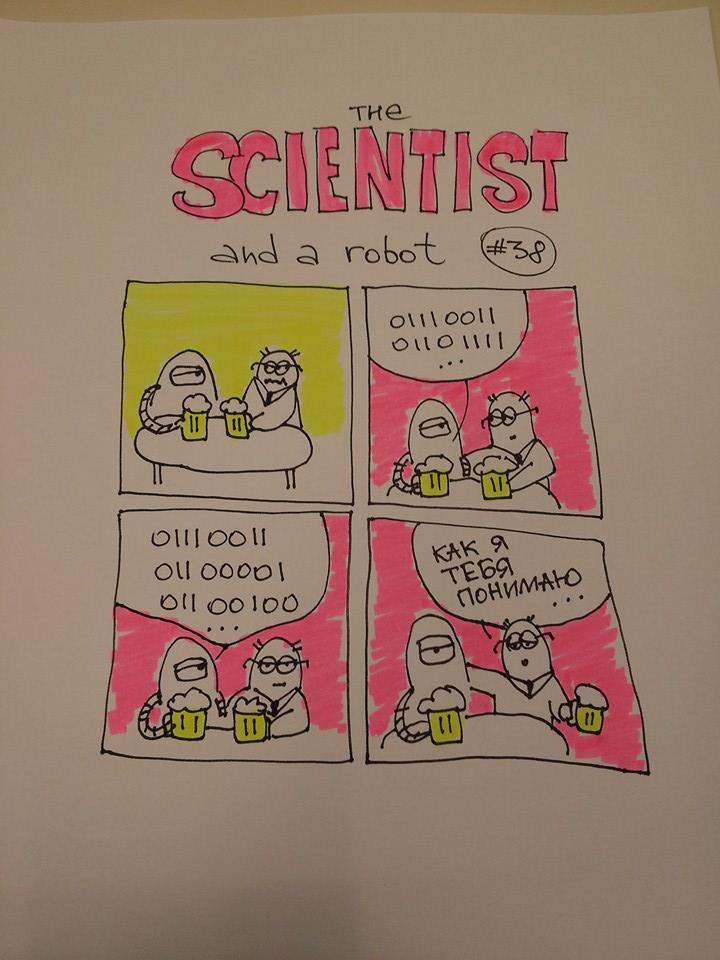 THE
SCIENTIST
and a robot #38
01110011
01101111
...
01110011
01100001
01100100
...
КАК Я
ТЕБЯ
ПОНИМАЮ
...